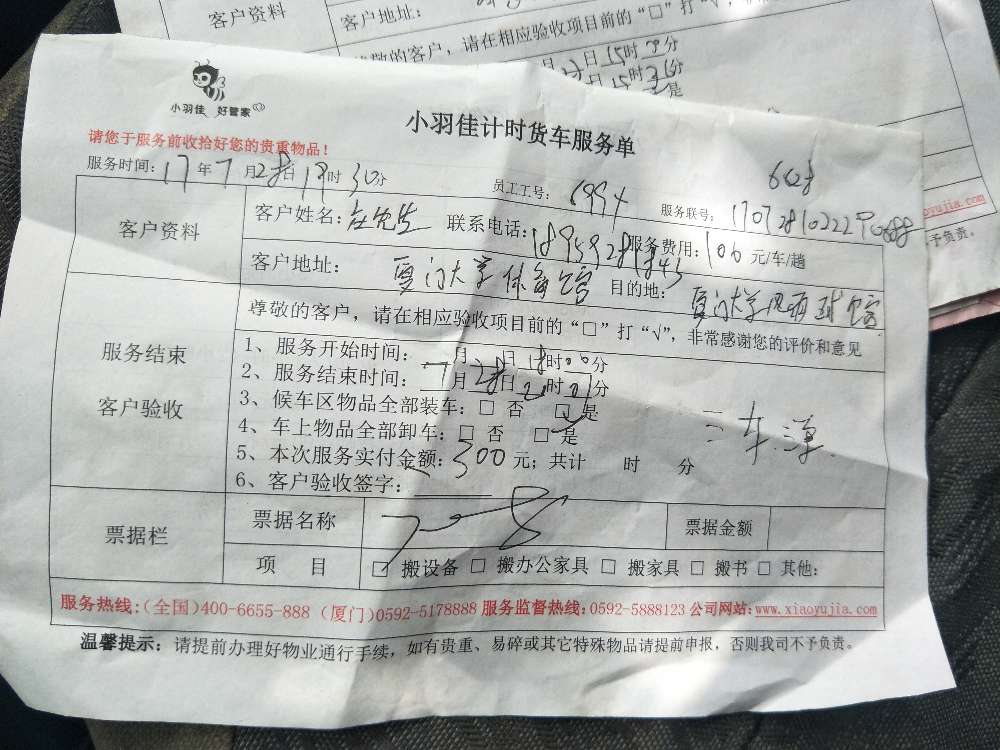 客户资料
客户地址：
尊敬的客户，请在相应验收项目前的“□”打“√”，非
日15时
是
小羽佳 好管家
小羽佳计时货车服务单
请您于服务前收拾好您的贵重物品！
6028
服务时间：17年7月28日19时30分 员工工号：6994 服务联号：
客户资料
客户姓名：庄先生 联系电话： 服务费用：100元/车/趟
客户地址：厦门大学体育馆 目的地：厦门大学风雨球馆
服务结束
客户验收
尊敬的客户，请在相应验收项目前的“□”打“√”，非常感谢您的评价和意见
1、服务开始时间： 月 日18时00分
2、服务结束时间：7月28日21时01分
3、候车区物品全部装车：□ 否 □ 是
4、车上物品全部卸车：□ 否 □ 是
三车
5、本次服务实付金额：300元；共计 时 分
6、客户验收签字：
票据栏
票据名称 票据金额
项 目 □ 搬设备 □ 搬办公家具 □ 搬家具 □ 搬书 □ 其他：
服务热线：（全国）400-6655-888（厦门）0592-5178888 服务监督热线：0592-5888123 公司网站：www.xiaoyujia.com
温馨提示：请提前办理好物业通行手续，如有贵重、易碎或其它特殊物品请提前申报，否则我司不予负责。
aoyujia.com
不予负责。